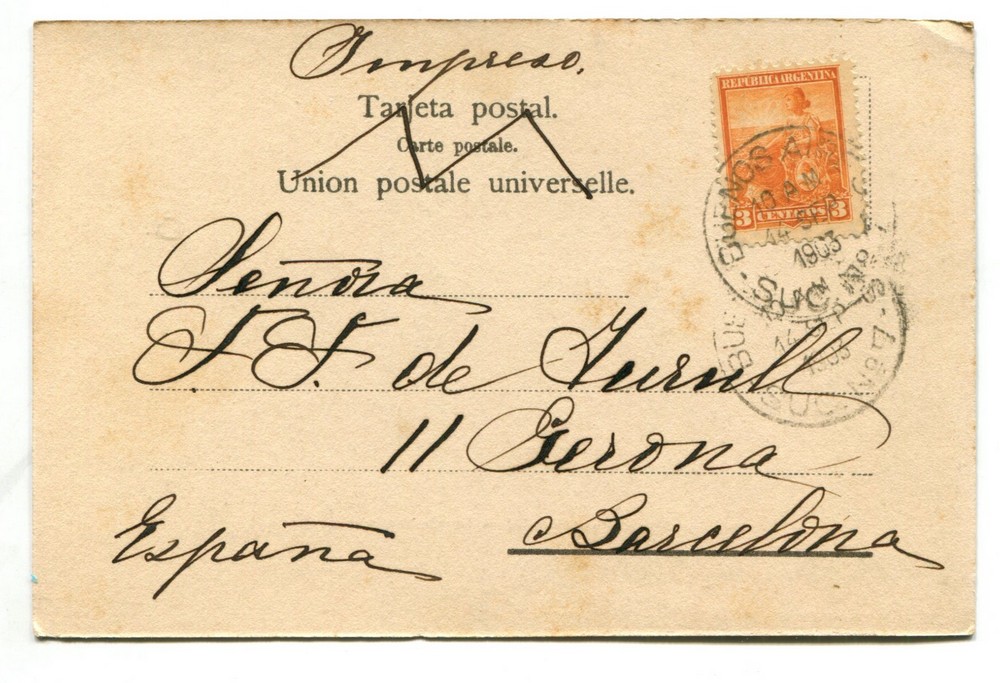 Impreso.
Tarjeta postal.
Carte postale.
Union postale universelle.
REPUBLICA ARGENTINA
3 CENTAVOS 3
BUENOS AIRES
10 A M
14 SEP
1903
SUC Nº 8
14 SEP
1903
Señora
F. F. de Turull
11 Gerona
Barcelona
España